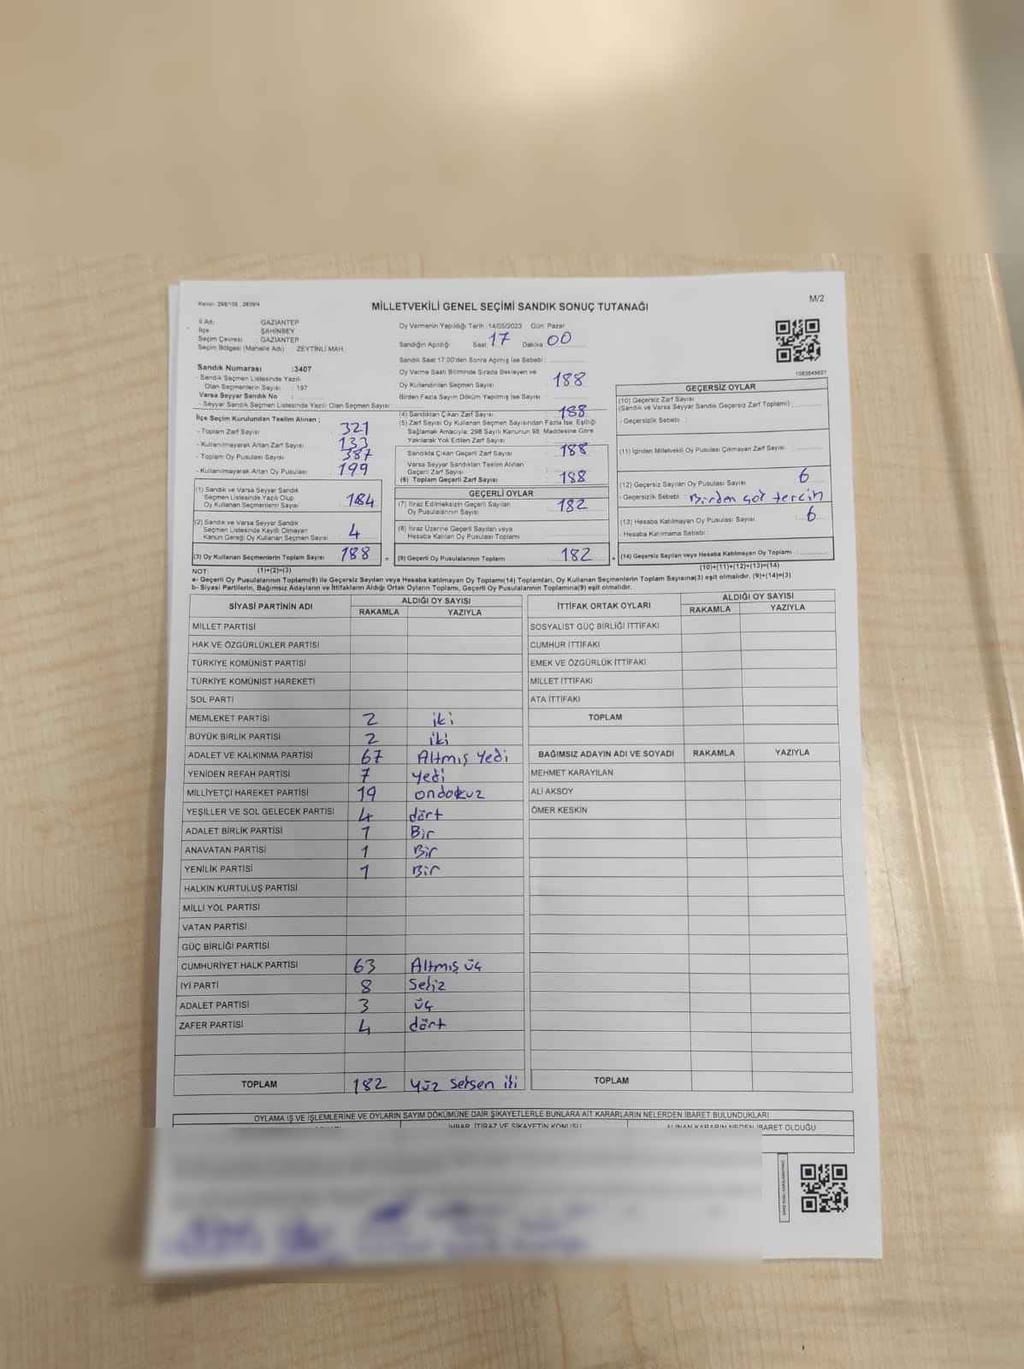 MİLLETVEKİLİ GENEL SEÇİMİ SANDIK SONUÇ TUTANAĞI
M/2
İl Adı: GAZİANTEP
İlçe ŞAHİNBEY
Seçim Çevresi GAZİANTEP
Seçim Bölgesi (Mahalle Adı) ZEYTİNLİ MAH.
Sandık Numarası :3407
- Sandık Seçmen Listesinde Yazılı
Olan Seçmenlerin Sayısı : 197
Varsa Seyyar Sandık No
- Seyyar Sandık Seçmen Listesinde Yazılı Olan Seçmen Sayısı
İlçe Seçim Kurulundan Teslim Alınan ;
- Toplam Zarf Sayısı 321
- Kullanılmayarak Artan Zarf Sayısı 133
- Toplam Oy Pusulası Sayısı 387
- Kullanılmayarak Artan Oy Pusulası 199
(1) Sandık ve Varsa Seyyar Sandık
Seçmen Listesinde Yazılı Olup
Oy Kullanan Seçmenlerin Sayısı 184
(2) Sandık ve Varsa Seyyar Sandık
Seçmen Listesinde Kayıtlı Olmayan
Kanun Gereği Oy Kullanan Seçmen Sayısı 4
(3) Oy Kullanan Seçmenlerin Toplam Sayısı 188
(1)+(2)=(3)
Oy Vermenin Yapıldığı Tarih :14/05/2023 Gün: Pazar
Sandığın Açıldığı Saat 17 Dakika 00
Sandık Saat 17.00'den Sonra Açılmış İse Sebebi :
Oy Verme Saati Bitiminde Sırada Bekleyen ve
Oy Kullandırılan Seçmen Sayısı 188
Birden Fazla Sayım Döküm Yapılmış İse Sayısı
(4) Sandıktan Çıkan Zarf Sayısı 188
(5) Zarf Sayısı Oy Kullanan Seçmen Sayısından Fazla İse, Eşitliği
Sağlamak Amacıyla; 298 Sayılı Kanunun 98. Maddesine Göre
Yakılarak Yok Edilen Zarf Sayısı
Sandıkta Çıkan Geçerli Zarf Sayısı 188
Varsa Seyyar Sandıktan Teslim Alınan
Geçerli Zarf Sayısı
(6) Toplam Geçerli Zarf Sayısı 188
GEÇERLİ OYLAR
(7) İtiraz Edilmeksizin Geçerli Sayılan
Oy Pusulalarının Sayısı 182
(8) İtiraz Üzerine Geçerli Sayılan veya
Hesaba Katılan Oy Pusulaları Toplamı
(9) Geçerli Oy Pusulalarının Toplamı 182
GEÇERSİZ OYLAR
(10) Geçersiz Zarf Sayısı
(Sandık ve Varsa Seyyar Sandık Geçersiz Zarf Toplamı)
- Geçersizlik Sebebi
(11) İçinden Milletvekili Oy Pusulası Çıkmayan Zarf Sayısı
(12) Geçersiz Sayılan Oy Pusulası Sayısı 6
- Geçersizlik Sebebi Birden çok tercih
(13) Hesaba Katılmayan Oy Pusulası Sayısı 6
Hesaba Katılmama Sebebi
(14) Geçersiz Sayılan veya Hesaba Katılmayan Oy Toplamı
(10)+(11)+(12)+(13)=(14)
NOT:
a- Geçerli Oy Pusulalarının Toplamı(9) ile Geçersiz Sayılan veya Hesaba katılmayan Oy Toplamı(14) Toplamları, Oy Kullanan Seçmenlerin Toplam Sayısına(3) eşit olmalıdır. (9)+(14)=(3)
b- Siyasi Partilerin, Bağımsız Adayların ve İttifakların Aldığı Ortak Oyların Toplamı, Geçerli Oy Pusulalarının Toplamına(9) eşit olmalıdır.
SİYASİ PARTİNİN ADI ALDIĞI OY SAYISI
RAKAMLA YAZIYLA
MİLLET PARTİSİ
HAK VE ÖZGÜRLÜKLER PARTİSİ
TÜRKİYE KOMÜNİST PARTİSİ
TÜRKİYE KOMÜNİST HAREKETİ
SOL PARTİ
MEMLEKET PARTİSİ 2 iki
BÜYÜK BİRLİK PARTİSİ 2 iki
ADALET VE KALKINMA PARTİSİ 67 Altmış Yedi
YENİDEN REFAH PARTİSİ 7 Yedi
MİLLİYETÇİ HAREKET PARTİSİ 19 ondokuz
YEŞİLLER VE SOL GELECEK PARTİSİ 4 dört
ADALET BİRLİK PARTİSİ 1 Bir
ANAVATAN PARTİSİ 1 Bir
YENİLİK PARTİSİ 1 Bir
HALKIN KURTULUŞ PARTİSİ
MİLLİ YOL PARTİSİ
VATAN PARTİSİ
GÜÇ BİRLİĞİ PARTİSİ
CUMHURİYET HALK PARTİSİ 63 Altmış üç
İYİ PARTİ 8 Sekiz
ADALET PARTİSİ 3 üç
ZAFER PARTİSİ 4 dört
TOPLAM 182 Yüz Seksen iki
İTTİFAK ORTAK OYLARI ALDIĞI OY SAYISI
RAKAMLA YAZIYLA
SOSYALİST GÜÇ BİRLİĞİ İTTİFAKI
CUMHUR İTTİFAKI
EMEK VE ÖZGÜRLÜK İTTİFAKI
MİLLET İTTİFAKI
ATA İTTİFAKI
TOPLAM
BAĞIMSIZ ADAYIN ADI VE SOYADI RAKAMLA YAZIYLA
MEHMET KARAYILAN
ALİ AKSOY
ÖMER KESKİN
TOPLAM
OYLAMA İŞ VE İŞLEMLERİNE VE OYLARIN SAYIM DÖKÜMÜNE DAİR ŞİKAYETLERLE BUNLARA AİT KARARLARIN NELERDEN İBARET BULUNDUKLARI
İHBAR, İTİRAZ VE ŞİKAYETİN KONUSU
ALINAN KARARIN NEDEN İBARET OLDUĞU